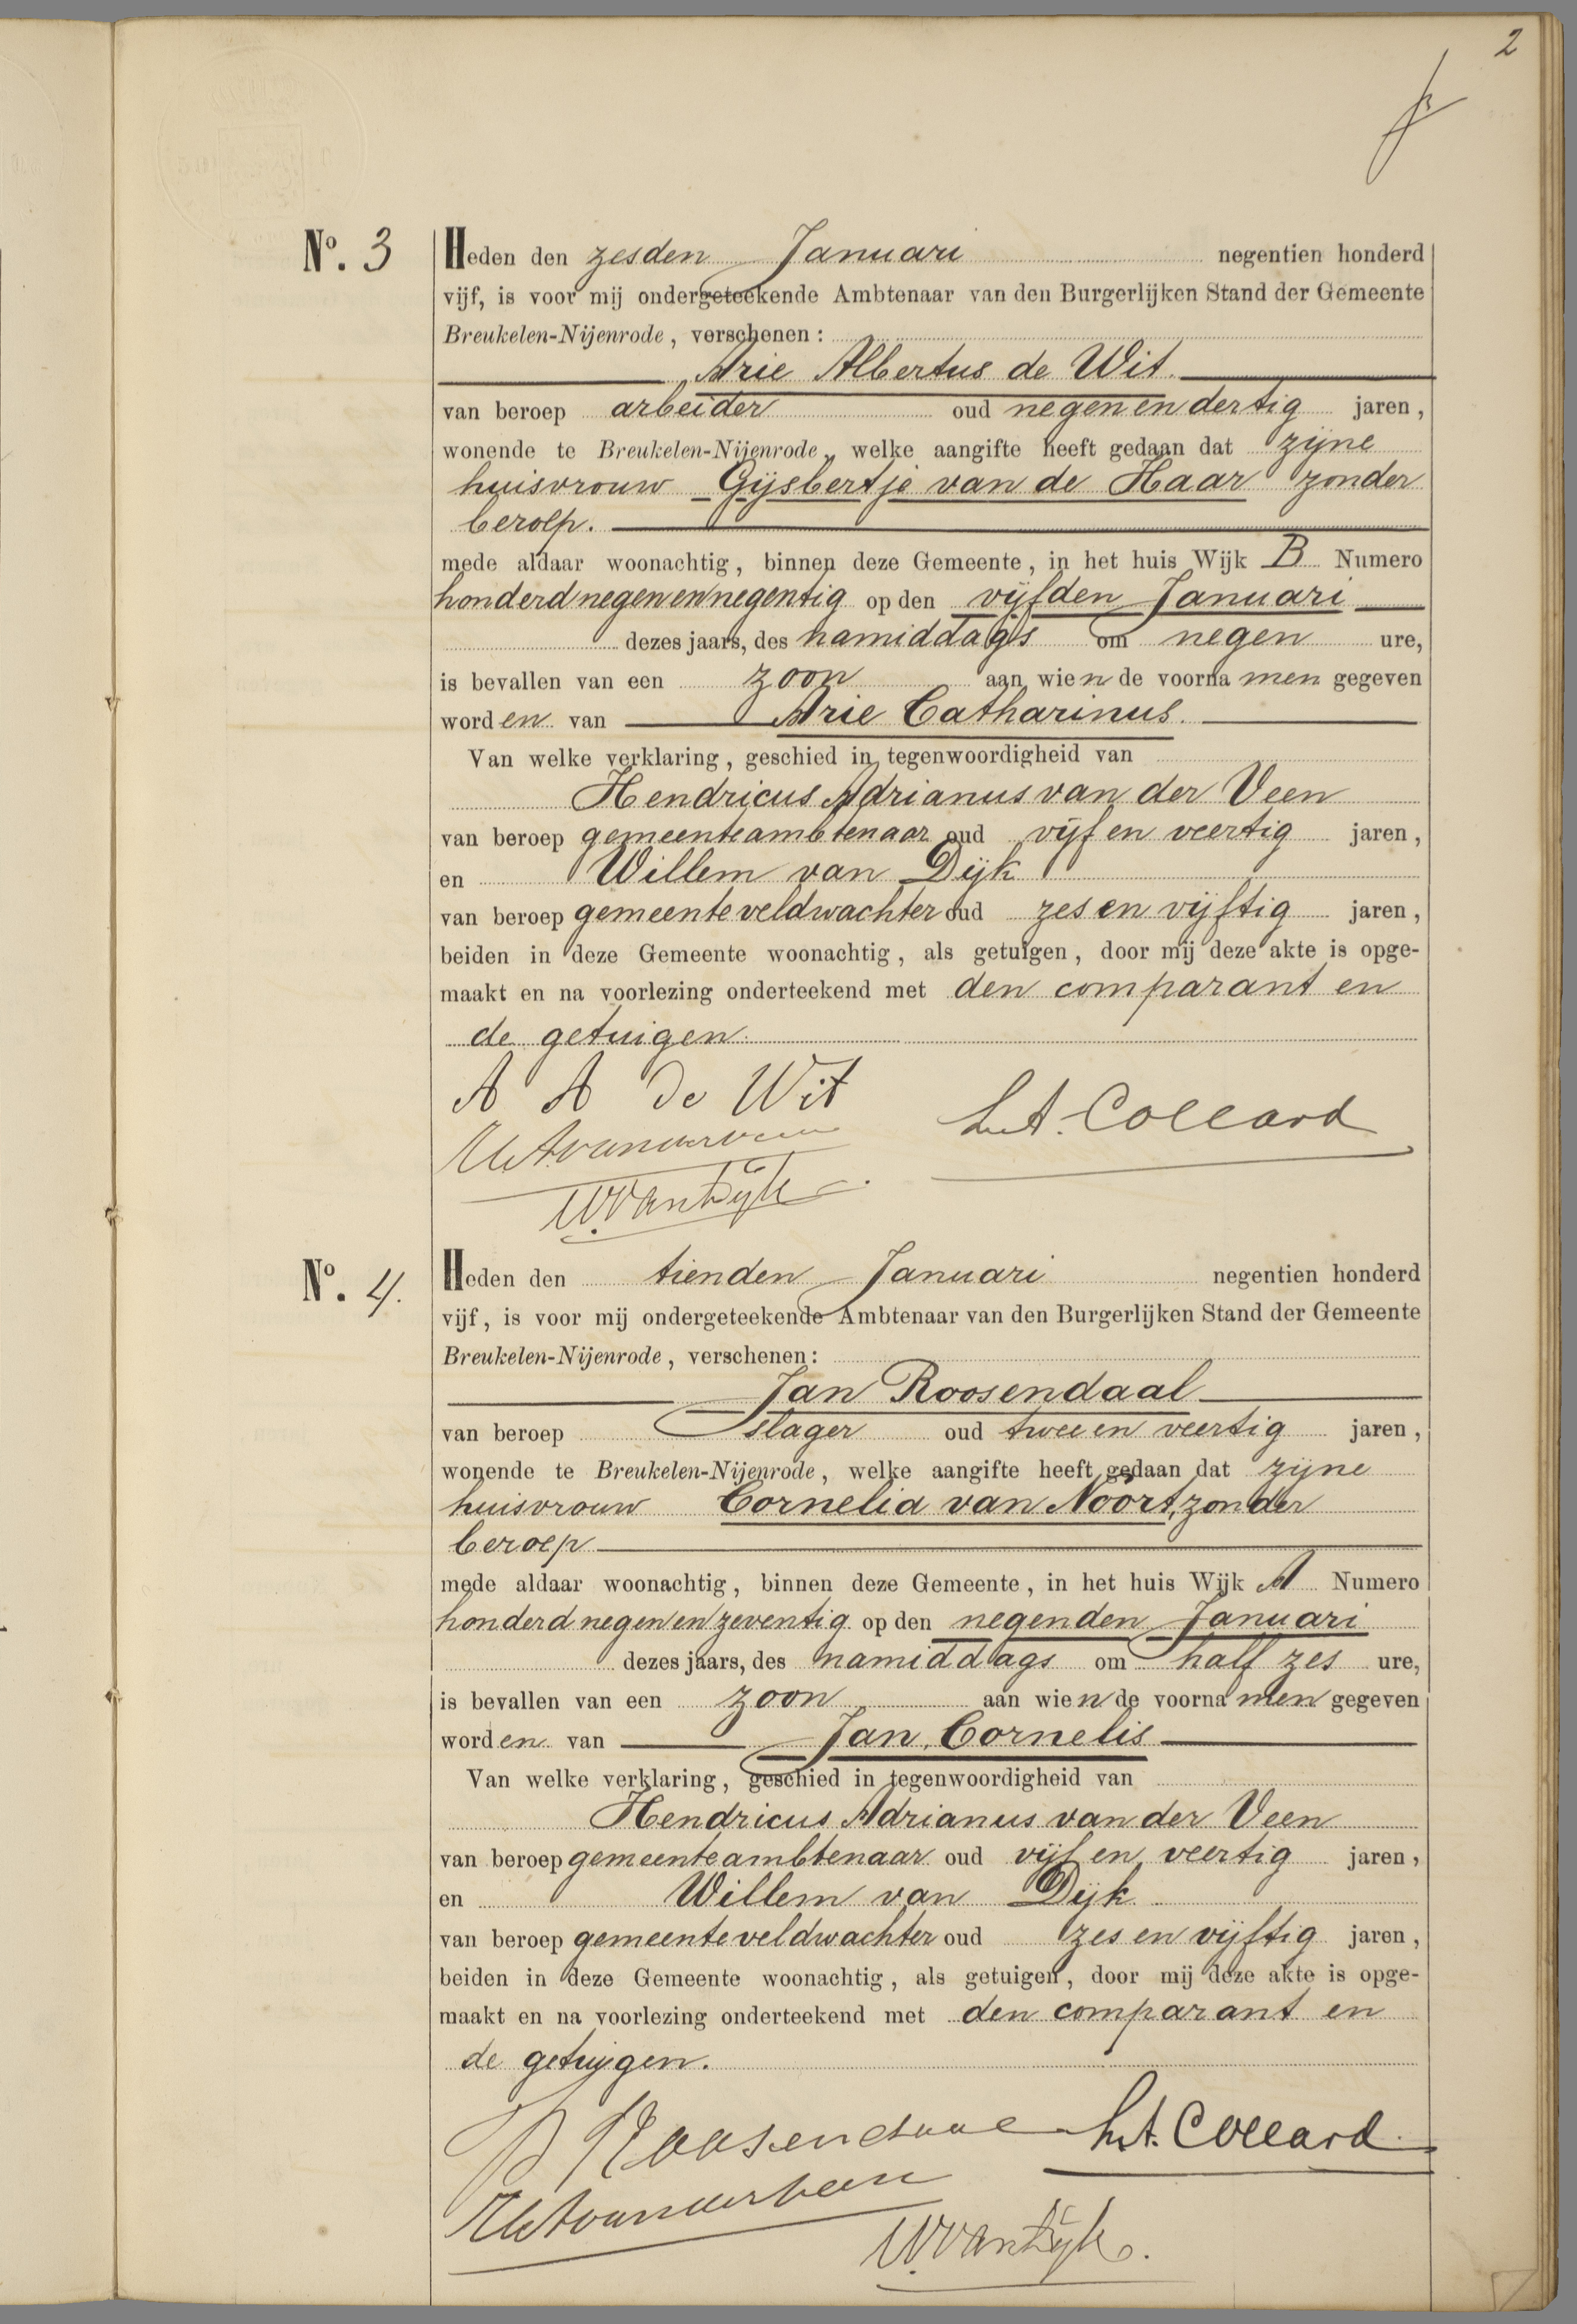 2
No. 3
Heden den zesden Januari negentien honderd
vijf, is voor mij ondergeteekende Ambtenaar van den Burgerlijken Stand der Gemeente
Breukelen-Nijenrode, verschenen:
Arie Albertus de Wit.
van beroep arbeider oud negen en dertig jaren,
wonende te Breukelen-Nijenrode, welke aangifte heeft gedaan dat zijne
huisvrouw Gijsbertje van de Haar zonder
beroep.
mede aldaar woonachtig, binnen deze Gemeente, in het huis Wijk B Numero
honderd negen en negentig op den vijfden Januari
dezes jaars, des namiddags om negen ure,
is bevallen van een zoon aan wien de voornamen gegeven
worden van Arie Catharinus.
Van welke verklaring, geschied in tegenwoordigheid van
Hendricus Adrianus van der Veen
van beroep gemeenteambtenaar oud vijf en veertig jaren,
en Willem van Dijk
van beroep gemeenteveldwachter oud zes en vijftig jaren,
beiden in deze Gemeente woonachtig, als getuigen, door mij deze akte is opge-
maakt en na voorlezing onderteekend met den comparant en
de getuigen.
A A de Wit
HA vanderveen
L.A. Collard
W. van Dijk
No. 4.
Heden den tienden Januari negentien honderd
vijf, is voor mij ondergeteekende Ambtenaar van den Burgerlijken Stand der Gemeente
Breukelen-Nijenrode, verschenen:
Jan Roosendaal
van beroep slager oud twee en veertig jaren,
wonende te Breukelen-Nijenrode, welke aangifte heeft gedaan dat zijne
huisvrouw Cornelia van Noort, zonder
beroep
mede aldaar woonachtig, binnen deze Gemeente, in het huis Wijk A Numero
honderd negen en zeventig op den negenden Januari
dezes jaars, des namiddags om half zes ure,
is bevallen van een zoon aan wien de voornamen gegeven
worden van Jan Cornelis
Van welke verklaring, geschied in tegenwoordigheid van
Hendricus Adrianus van der Veen
van beroep gemeenteambtenaar oud vijf en veertig jaren,
en Willem van Dijk
van beroep gemeenteveldwachter oud zes en vijftig jaren,
beiden in deze Gemeente woonachtig, als getuigen, door mij deze akte is opge-
maakt en na voorlezing onderteekend met den comparant en
de getuigen.
J Roosendaal
L.A. Collard
HA vanderveen
W. van Dijk.